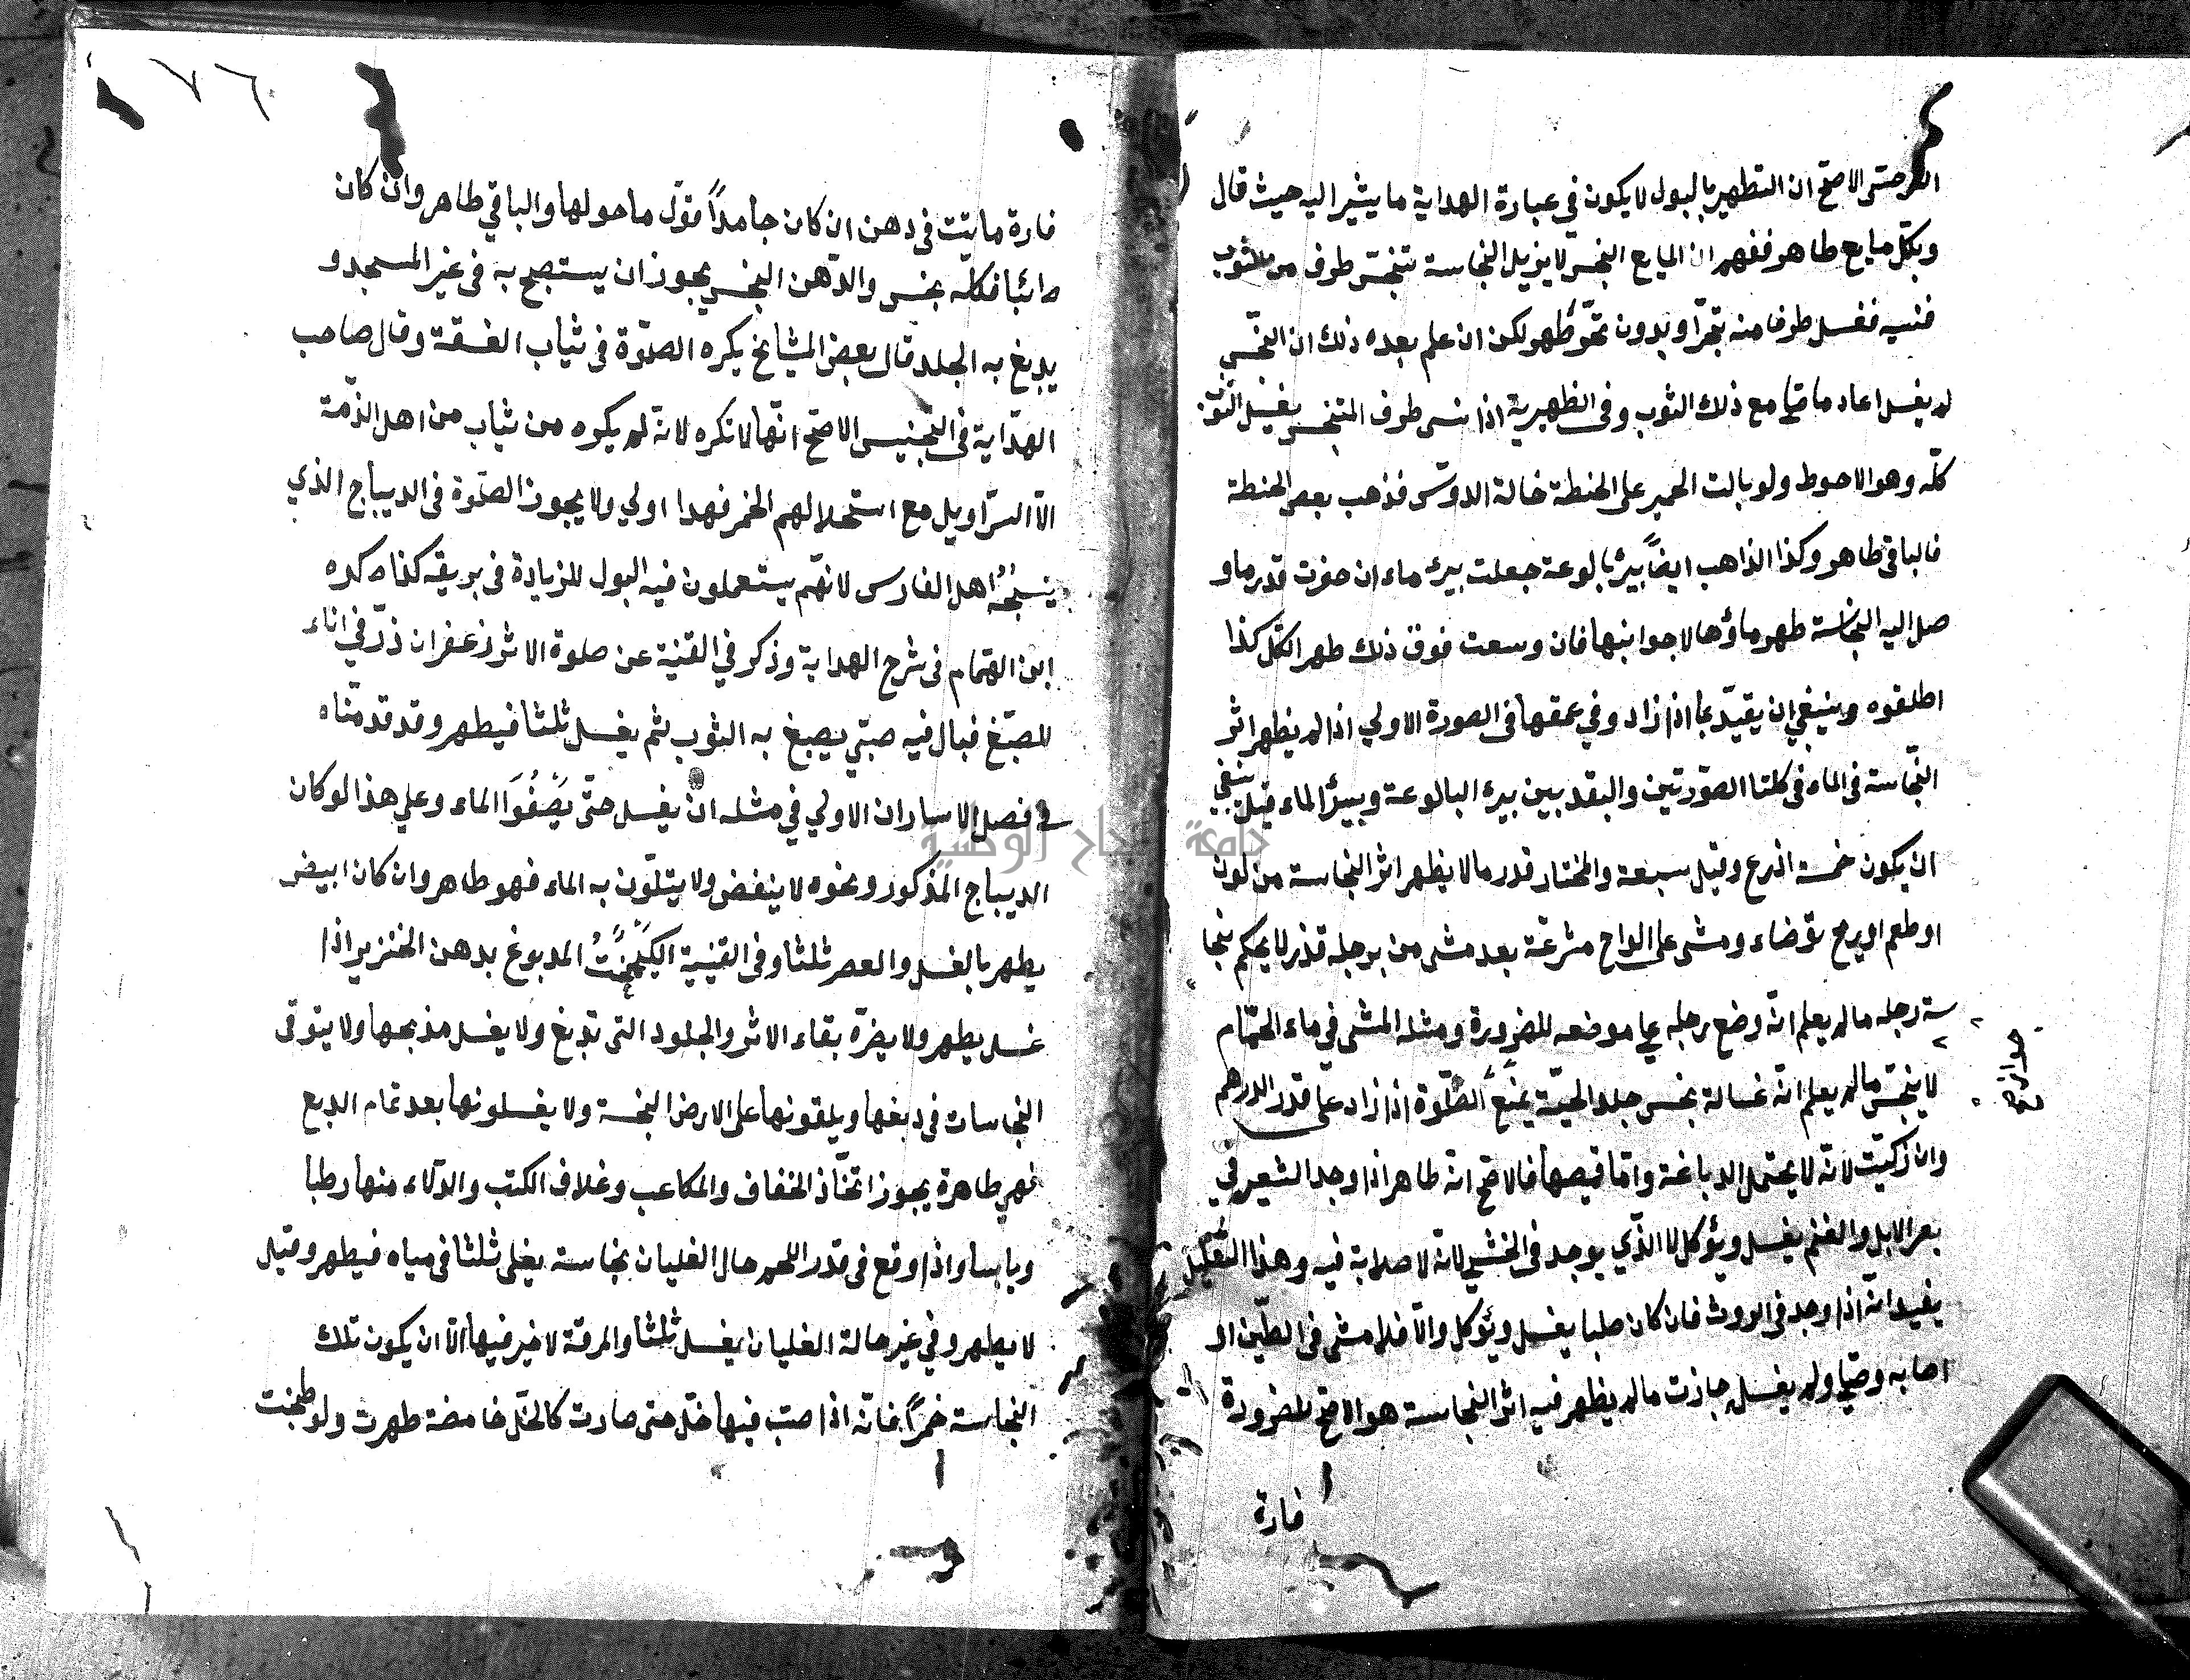 السرخسى الاصح ان التطهير بالبول لا يكون في عبارة الهداية ما يشير اليه حيث قال
وبكل مايع طاهر ففهم ان المايع النجس لا يزيل النجاسة تنجس طرف من الثوب
فنسيه فغسل طرفا منه بتحرّ او بدون تحرّ طهر لكن ان علم بعده ذلك ان النجس
لم يغسل اعاد ما صلى مع ذلك الثوب وفى الظهيرية اذا نسى طرف المتنجس يغسل الثوب
كلّه وهو الاحوط ولو بالت الحمير على الحنطة حالة الدوس فذهب بعض الحنطة
فالباقى طاهر وكذا الذاهب ايضاً بيرُ بالوعة جعلت بيرَ ماء ان حفرت قدر ما و
صل اليه النجاسة طهر ماؤها لا جوانبها فان وسعت فوق ذلك طهر الكل كذا
اطلقوه وينبغي ان يقيّد بما اذا زاد وفي عمقها فى الصورة الاولي اذا لم يظهر اثر
النّجاسة فى الماء فى كلتا الصّورتين والبعد بين بيرء البالوعة وبيرُ الماء قيل ينبغي
ان يكون خمسة اذرع وقيل سبعة والمختار قدر ما لا يظهر اثر النجاسة من لون
او طعم او ريح توّضاء ومشى على الواح مشرعة بعد مشى من برجله قذر لا يحكم بنجا
سة رجله ما لم يعلم انّه وضع رجله على موضعه للضرورة ومثله المشى في ماء الحمّام
لا ينجّس ما لم يعلم انّه غسالة نجس جلد الحيّة يمنع الصّلوة اذا زاد على قدر الدرهم
وان زكيت لانّه لا يحتمل الدباغة وامّا قميصها فالاصح انّه طاهر اذا وجد الشعير في
بعر الابل والغنم يغسل ويؤكل لا الذّي يوجد فى الخشى لانّه لا صلابة فيه وهذا التعليل
يفيد انّه اذا وجد فى الروث فان كان صلبا يغسل ويؤكل والّا فلا مشى فى الطّين او
اصابه وصلى ولم يغسل جازت ما لم يظهر فيه اثر النجاسة هو الاصح للضرورة
فارة
٧٦
فارة ماتت فى دهن ان كان جامداً قوّر ما حولها والباقي طاهر وان كان
مائبا فكلّه نجس والدّهن النجس يجوز ان يستصبح به فى غير المسجد و
يدبغ به الجلد قال بعض المشايخ يكره الصلوة فى ثياب الفسقة وقال صاحب
الهدّاية فى التجنيس الاصح انّها لا تكره لانّه لم يكره من ثياب من اهل الذّمة
الّا السّراويل مع استحلالهم الخمر فهدا اولي ولا يجوز الصّلوة فى الديباج الذي
ينسجُه اهل الفارس لانّهم يستعملون فيه البول للزيادة فى بريقه كذا ذكره
ابن الهمّام فى شرح الهداية وذكر في القنية عن صلوة الاثر زعفران ذرّ في اناء
للصبّغ فبال فيه صبّي يصبغ به الثوب ثم يغسل ثلثا فيطهر وقد قدمّناه
فى فصل الاسار ان الاولي في مثله ان يغسل حتّى يَصْفُوَا الماء وعلي هذا لو كان
الديباج المذكور ونحوه لا ينفض ولا يتلوّن به الماء فهو طاهر وان كان ابيض
يطهر بالغسل والعصر ثلثا وفى القنية الكَيْمُخْتُ المدبوغ بدهن الخنزير اذا
غسل يطهر ولا يضرّه بقاء الاثر والجلود التى تدبغ ولا يغسل مذبحها ولا يتوقى
النجاسات فى دبغها ويلقونها على الارض النجسة ولا يغسلونها بعد تمام الدبغ
فهي طاهرة يجوز اتخّاذ الخفاف والمكاعب وغلاف الكتب والدّلاء منها رطبا
ويابسا واذا وقع فى قدر اللحم حال الغليان نجاسة يغلى ثلثا فى مياه فيطهر وقيل
لا يطهر وفي غير حالة الغليان يغسل ثلثا والمرقة لا خير فيها الّا ان يكون تلك
النجاسة خمراً فانّه اذا صب فيها خلّ حتى صارت كالخلّ حامضة طهرت ولو طبخت